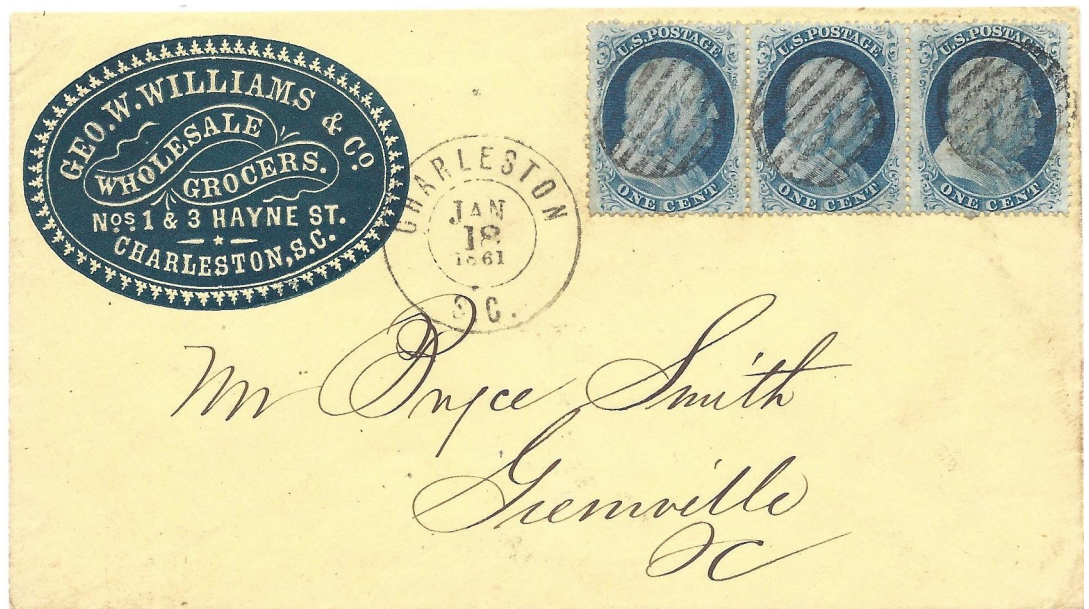 GEO. W. WILLIAMS & Co
WHOLESALE
GROCERS.
Nos 1 & 3 HAYNE ST.
CHARLESTON, S.C.
CHARLESTON
JAN
18
1861
S.C.
U.S. POSTAGE
ONE CENT
U.S. POSTAGE
ONE CENT
U.S. POSTAGE
ONE CENT
Mr Pryce Smith
Greenville
SC